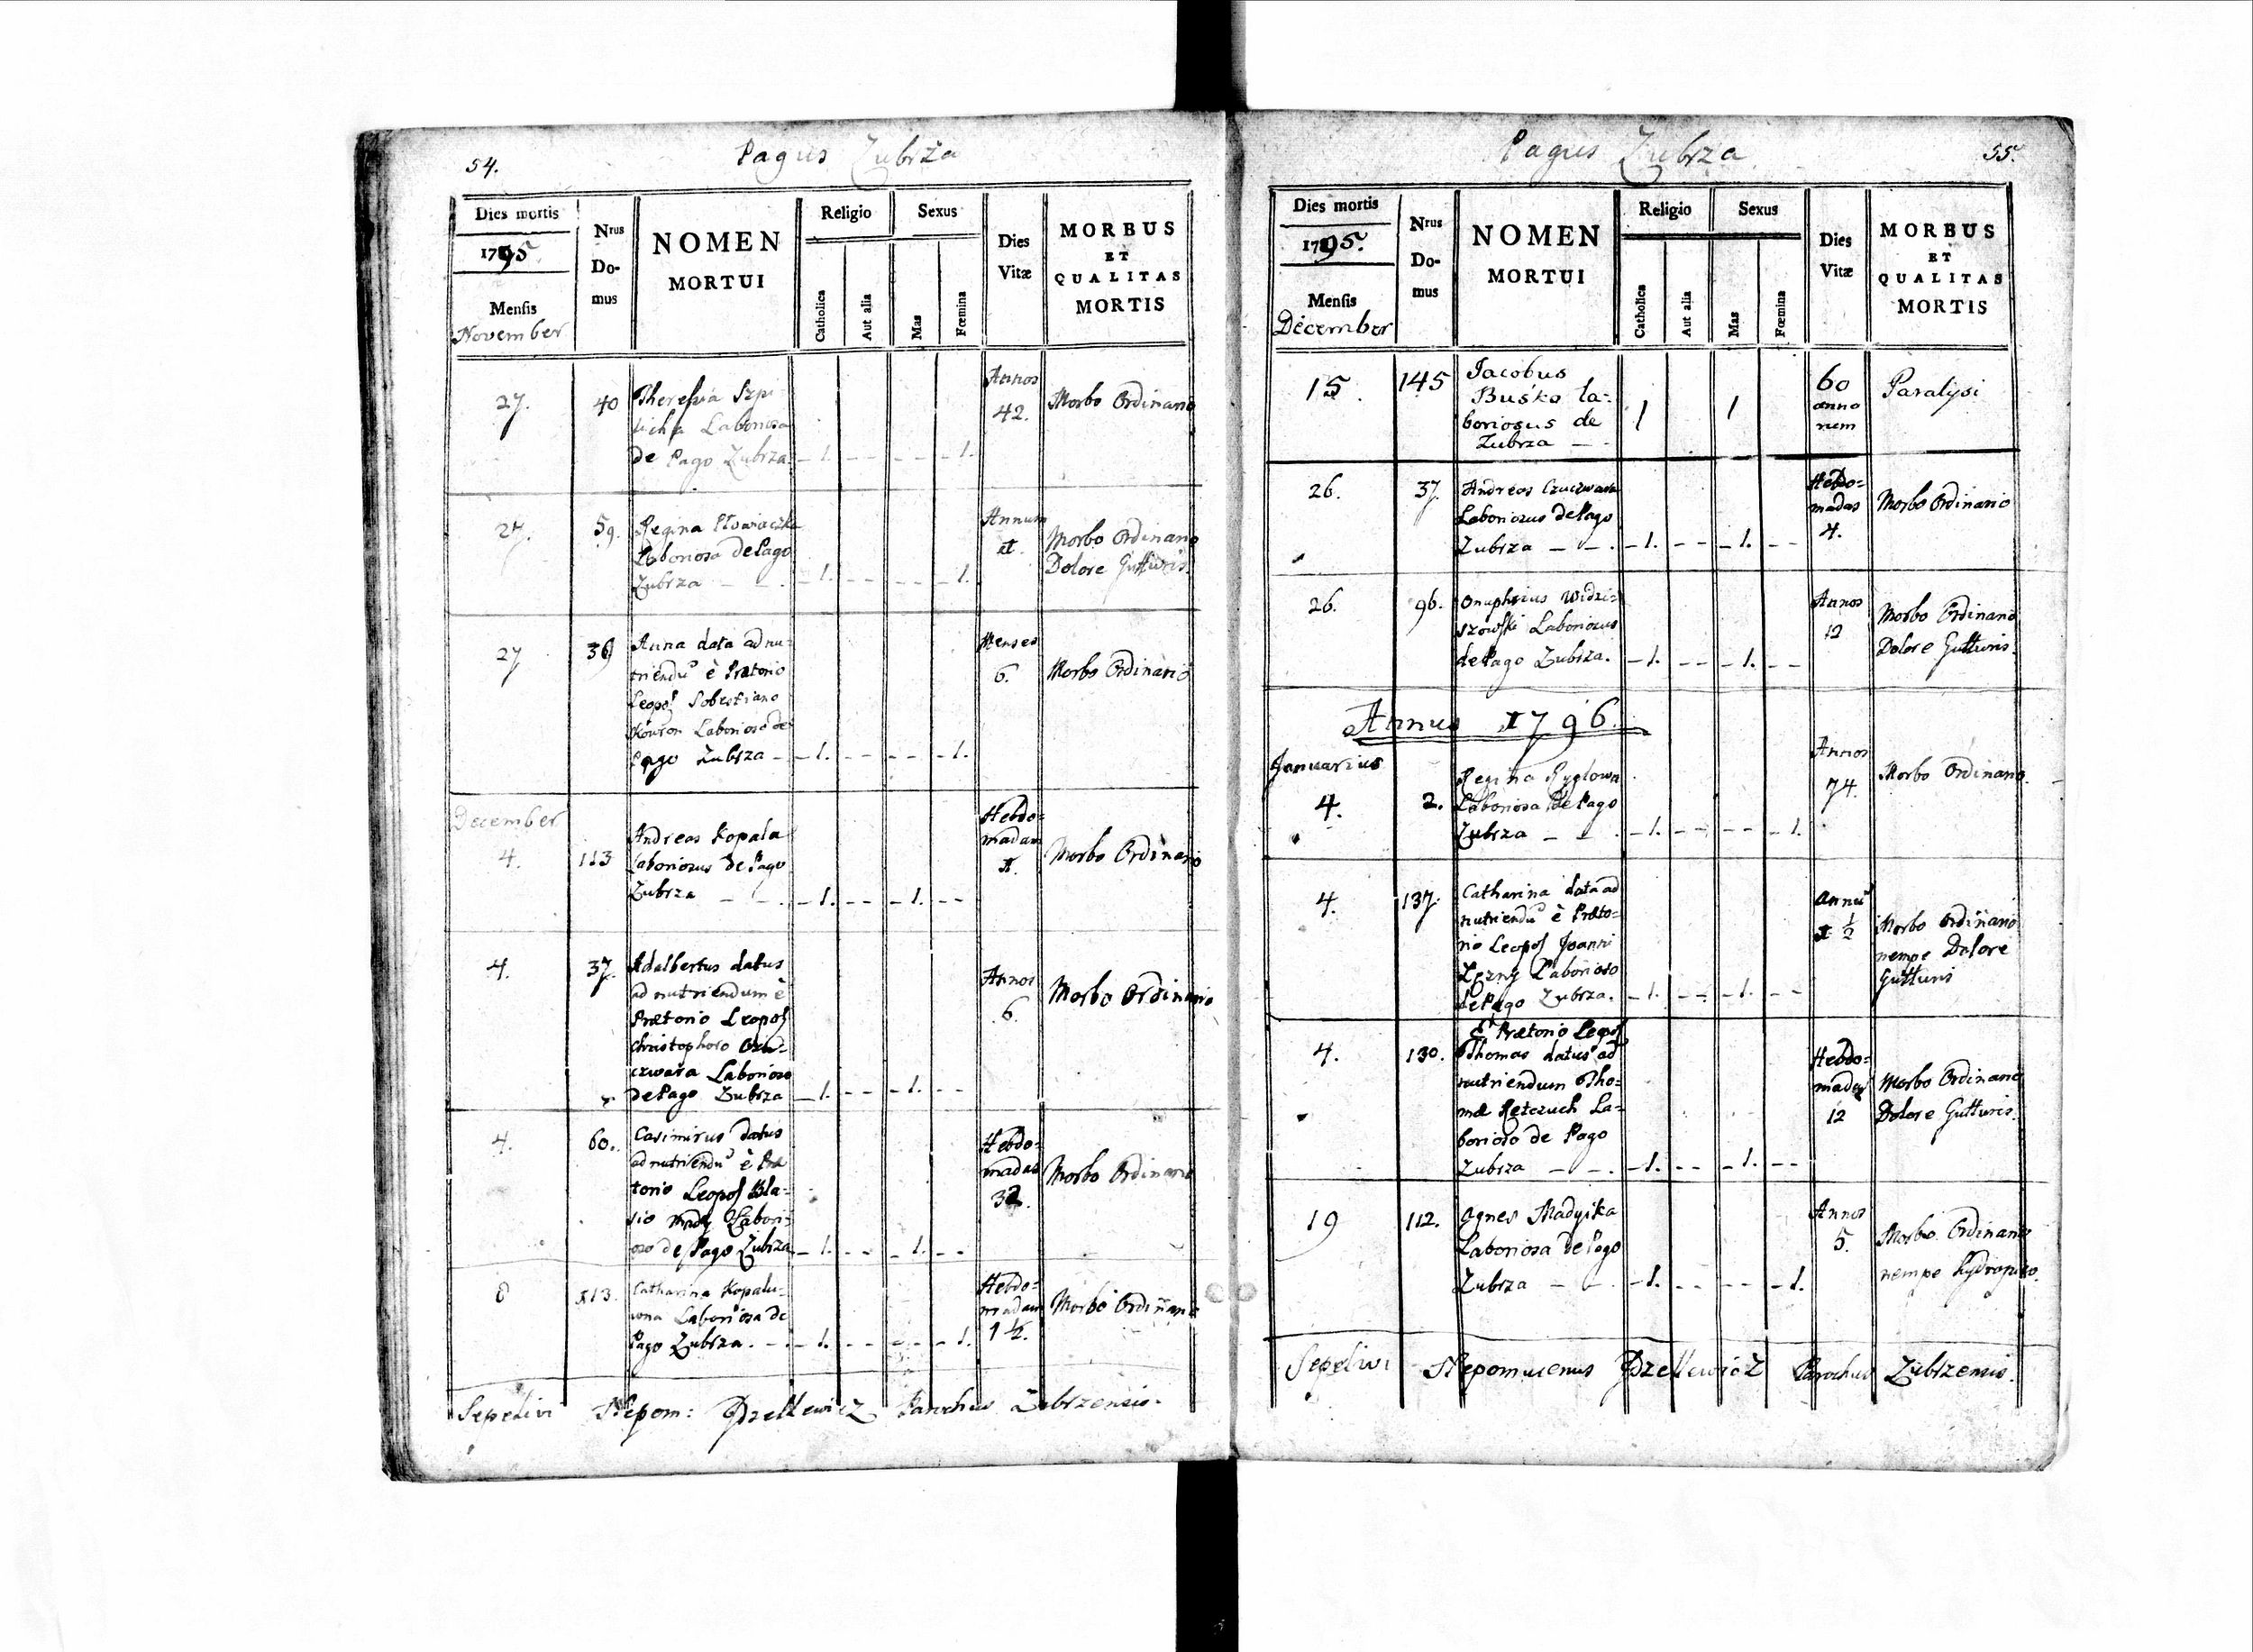 54.
Pagus Zubrza
Dies mortis
1795
Mensis
November
Nrus
Do-
mus
NOMEN
MORTUI
Religio
Catholica
Aut alia
Sexus
Mas
Fœmina
Dies
Vitæ
MORBUS
ET
QUALITAS
MORTIS
27. 40 Theresia Szpi
Laboriosa
de Pago Zubrza. - 1. - - - - - 1.
Annos
42.
Morbo Ordinario
27. 59. Regina
Laboriosa de Pago
Zubrza - 1. - - - - - 1.
Annum
1.
Morbo Ordinario
Dolore Gutturis.
27 36 Anna data ad nu-
triendū è Prætorio
Leopol Sobestiano
Laborioso de
Pago Zubrza - - 1. - - - - - 1.
Menses
6.
Morbo Ordinario
December
4. 113 Andreas Kopala
Laboriosus de Pago
Zubrza - - . - 1. - - - 1. - -
Hebdo-
madam
1.
Morbo Ordinario
4. 37. Adalbertus datus
ad nutriendum è
Prætorio Leopol
Christophoro Czu-
czwara Laborioso
de Pago Zubrza - 1. - - - 1. - -
Annos
6.
Morbo Ordinario
4. 60. Casimirus datus
ad nutriendū è Præ
torio Leopol Bla-
sio Labori-
oso de Pago Zubrza - 1. - - - 1. - -
Hebdo-
madas
32.
Morbo Ordinario
8 113. Catharina Kopalu-
wna Laboriosa de
Pago Zubrza. - . - 1. - - - - - 1.
Hebdo-
madam
1 ½.
Morbo Ordinario
Sepelivi Nepom: Dzellewicz Parochus Zubrzensis.
55.
Pagus Zubrza
Dies mortis
1795.
Mensis
December
Nrus
Do-
mus
NOMEN
MORTUI
Religio
Catholica
Aut alia
Sexus
Mas
Fœmina
Dies
Vitæ
MORBUS
ET
QUALITAS
MORTIS
15. 145 Jacobus
Buśko la-
boriosus de
Zubrza - -
1 1
60
anno
rum
Paralysi
26. 37. Andreas Czuczwara
Laboriosus de Pago
Zubrza - - . - 1. - - - 1. - -
Hebdo-
madas
4.
Morbo Ordinario
26. 96. Onuphrius Widzi-
szowski Laboriosus
de Pago Zubrza. - 1. - - - 1. - -
Annos
12
Morbo Ordinario
Dolore Gutturis.
Annus 1796.
Januarius
4. 2. Regina Ryglowa
Laboriosa de Pago
Zubrza - - . - 1. - - - - - 1.
Annos
74.
Morbo Ordinario.
4. 137. Catharina data ad
nutriendū è Præto-
rio Leopol Joanni
Laborioso
de Pago Zubrza. - 1. - - - 1. - -
Annū
1 ½
Morbo Ordinario
nempe Dolore
Gutturis
4. 130. È Prætorio Leopol
Thomas datus ad
nutriendum Tho-
mæ Retczuch La-
borioso de Pago
Zubrza - - . - 1. - - - 1. - -
Hebdo-
madas
12
Morbo Ordinario
Dolore Gutturis.
19 112. Agnes Madyika
Laboriosa de Pago
Zubrza - - . - 1. - - - - - 1.
Annos
5.
Morbo Ordinario
nempe hydropico.
Sepelivi Nepomucenus Dzellewicz Parochus Zubrzensis.